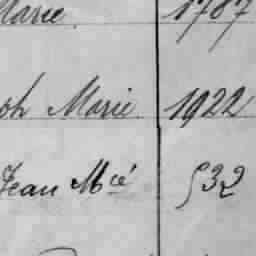 Marie 1787
ph Marie 1922
Jean Mié 532